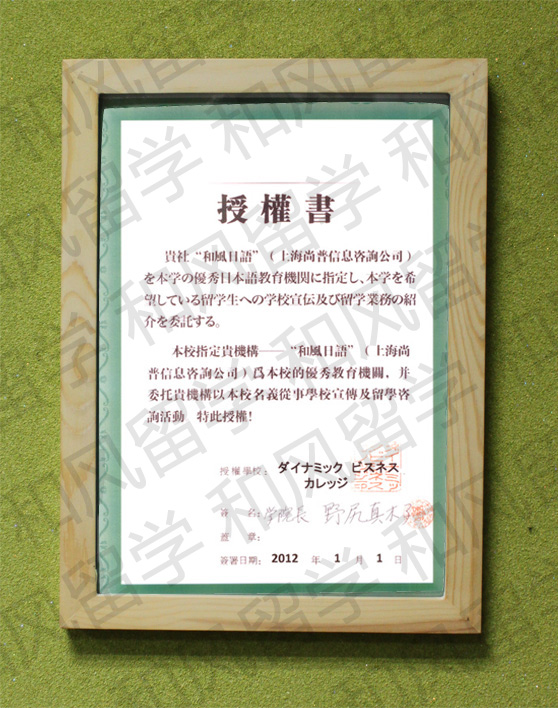 授權書
貴社“和風日語”（上海尚普信息咨詢公司）
を本学の優秀日本語教育機関に指定し、本学を希
望している留学生への学校宣伝及び留学業務の紹
介を委託する。
本校指定貴機構——“和風日語”（上海尚
普信息咨詢公司）爲本校的優秀教育機關，并
委托貴機構以本校名義從事學校宣傳及留學咨
詢活動　特此授權！
授權學校：ダイナミック ビスネス
カレッジ
簽　名：学院長　野尻真木子
蓋　章：
簽署日期：2012 年 1 月 1 日
和风留学